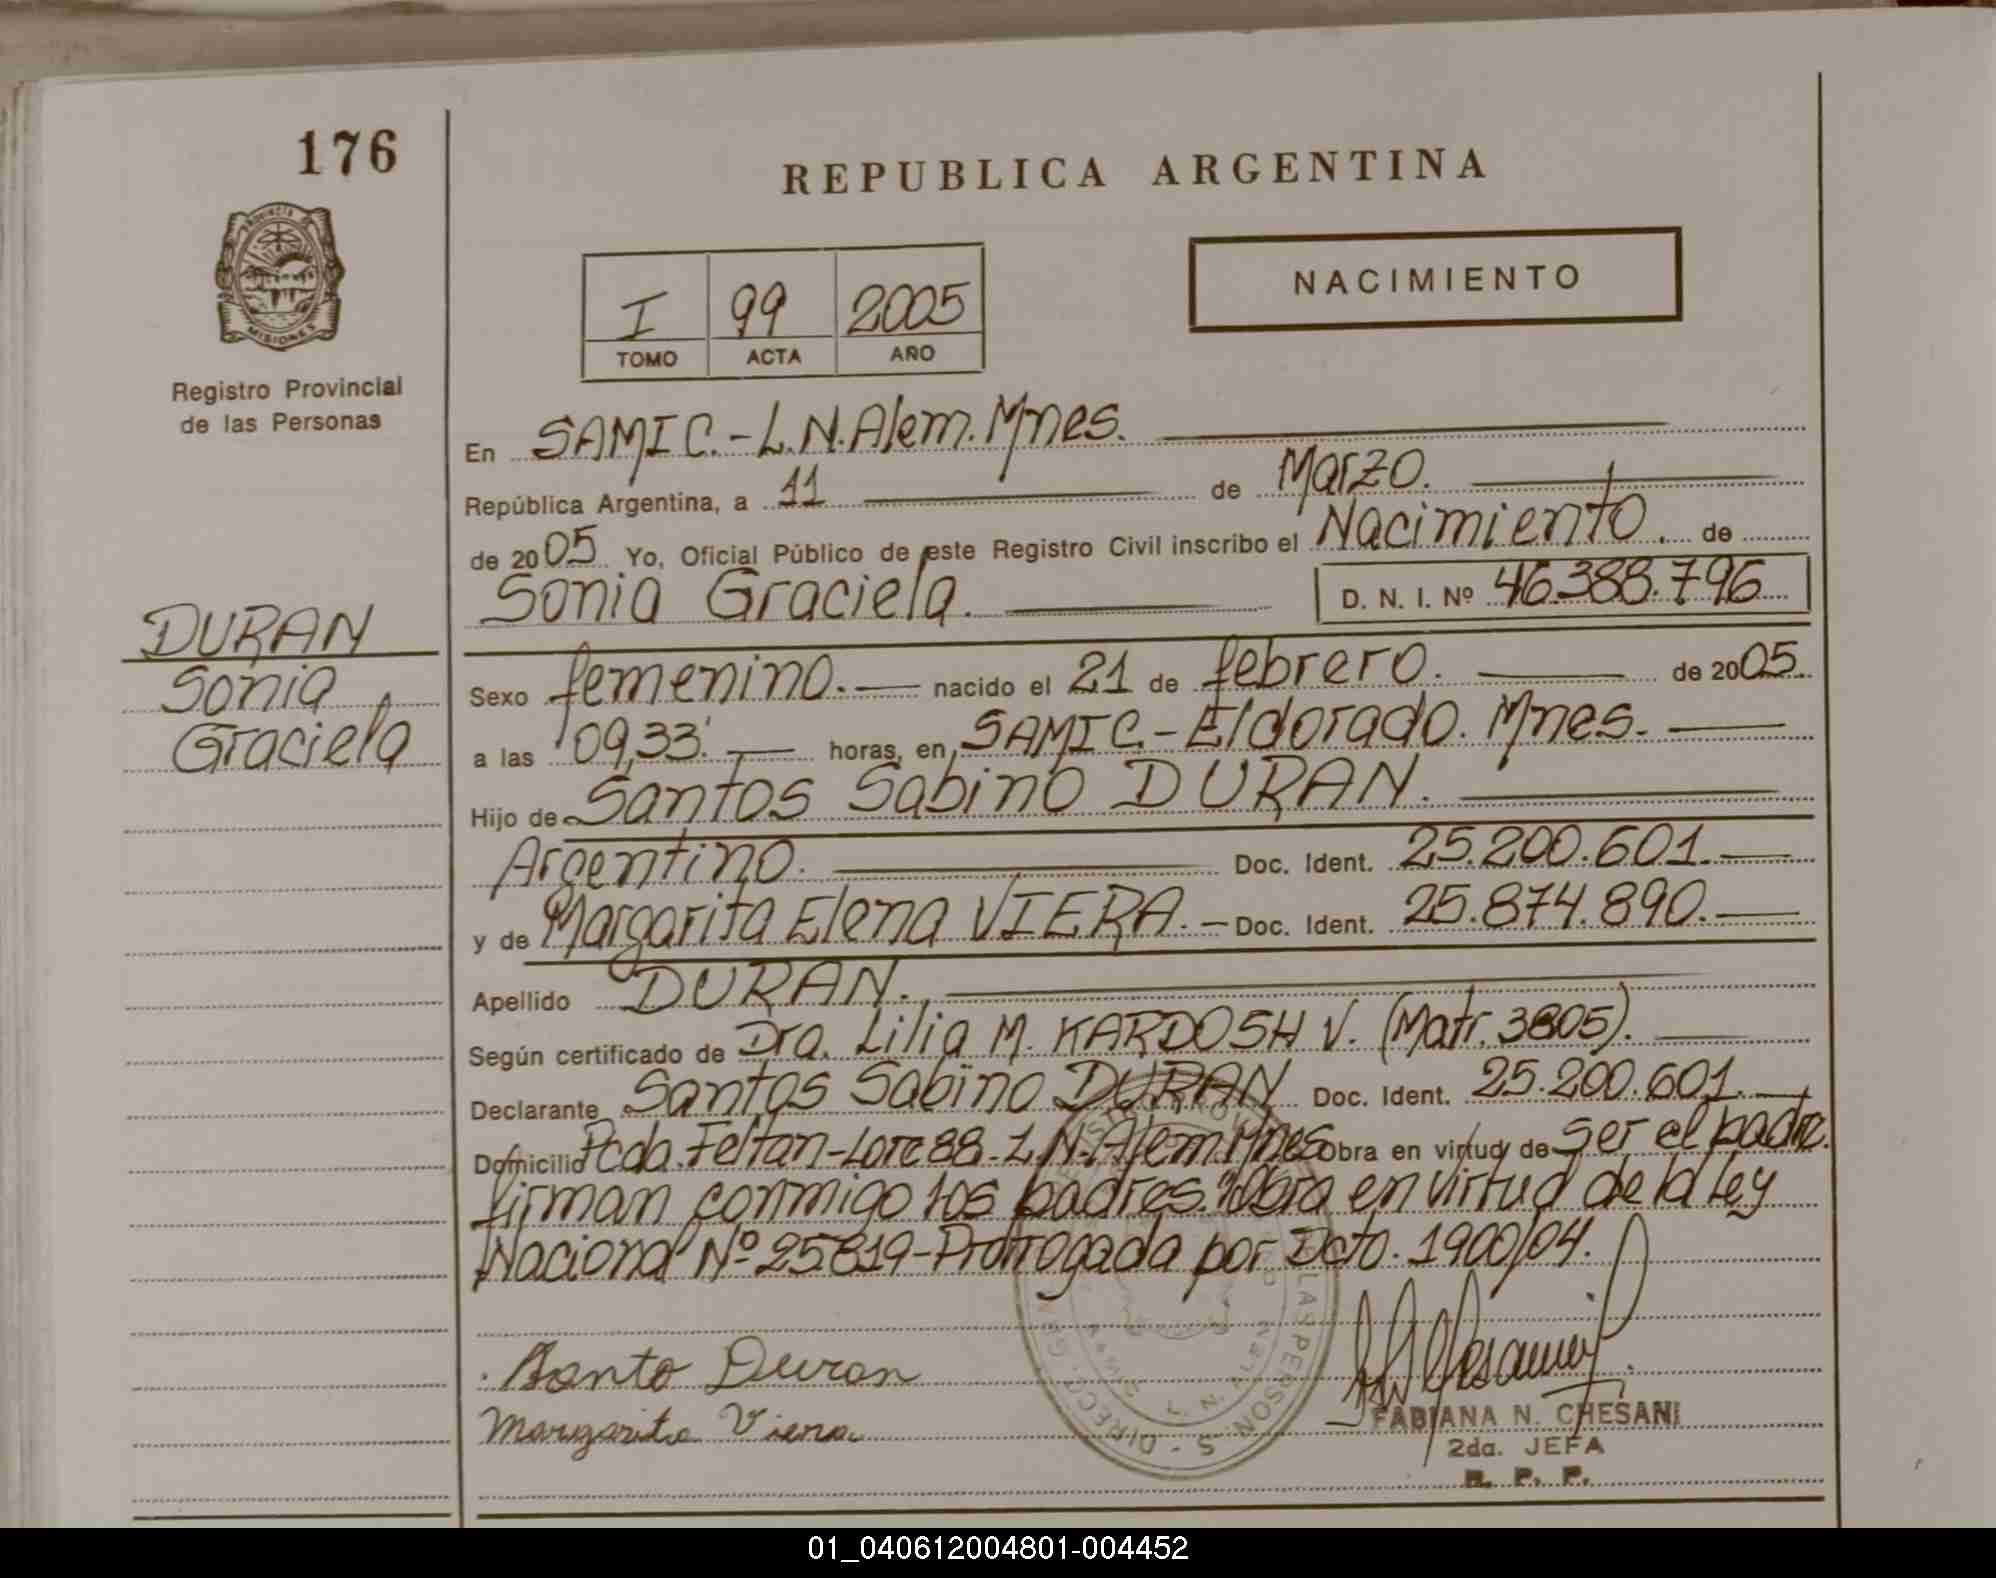 176
REPUBLICA ARGENTINA
NACIMIENTO
PROVINCIA DE
MISIONES
Registro Provincial
de las Personas
I 99 2005
TOMO ACTA AÑO
En SAMIC.-L.N.Alem.Mnes.
República Argentina, a 11 de Marzo.
de 2005 Yo, Oficial Público de este Registro Civil inscribo el Nacimiento. de
Sonia Graciela. D. N. I. Nº 46.388.796
DURAN
Sonia
Graciela
Sexo femenino. nacido el 21 de febrero. de 2005.
a las 09,33' horas, en SAMIC-Eldorado. Mnes.
Hijo de Santos Sabino DURAN.
Argentino. Doc. Ident. 25.200.601.
y de Margarita Elena VIERA. Doc. Ident. 25.874.890.
Apellido DURAN.
Según certificado de Dra. Lilia M. KARDOSH V. (Matr. 3805).
Declarante Santos Sabino DURAN Doc. Ident. 25.200.601.
Domicilio Pcda. Feltan-Lote 88-L.N.Alem.Mnes Obra en virtud de ser el padre.
firman conmigo los padres. Obra en virtud de la Ley
Nacional Nº 25819-Prorrogada por Dcto. 1900/04.
Santo Duran
Margarita Viera
FABIANA N. CHESANI
2da. JEFA
R. P. P.
01_040612004801-004452